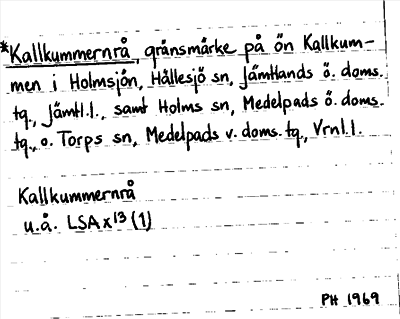 *Kallkummernrå, gränsmärke på ön Kallkum-
men i Holmsjön, Hällesjö sn, Jämtlands ö. doms.
tg., Jämtl.l., samt Holms sn, Medelpads ö. doms.
tg., o. Torps sn, Medelpads v. doms. tg., Vrnl.l.
Kallkummernrå
u.å. LSA x13 (1)
PH 1969